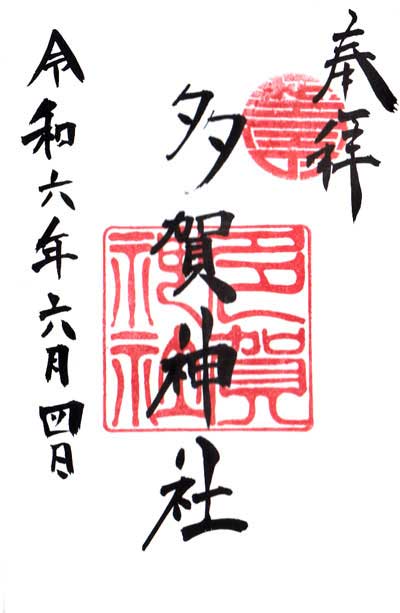 奉拝
多賀神社
多賀
神社
令和六年六月四日